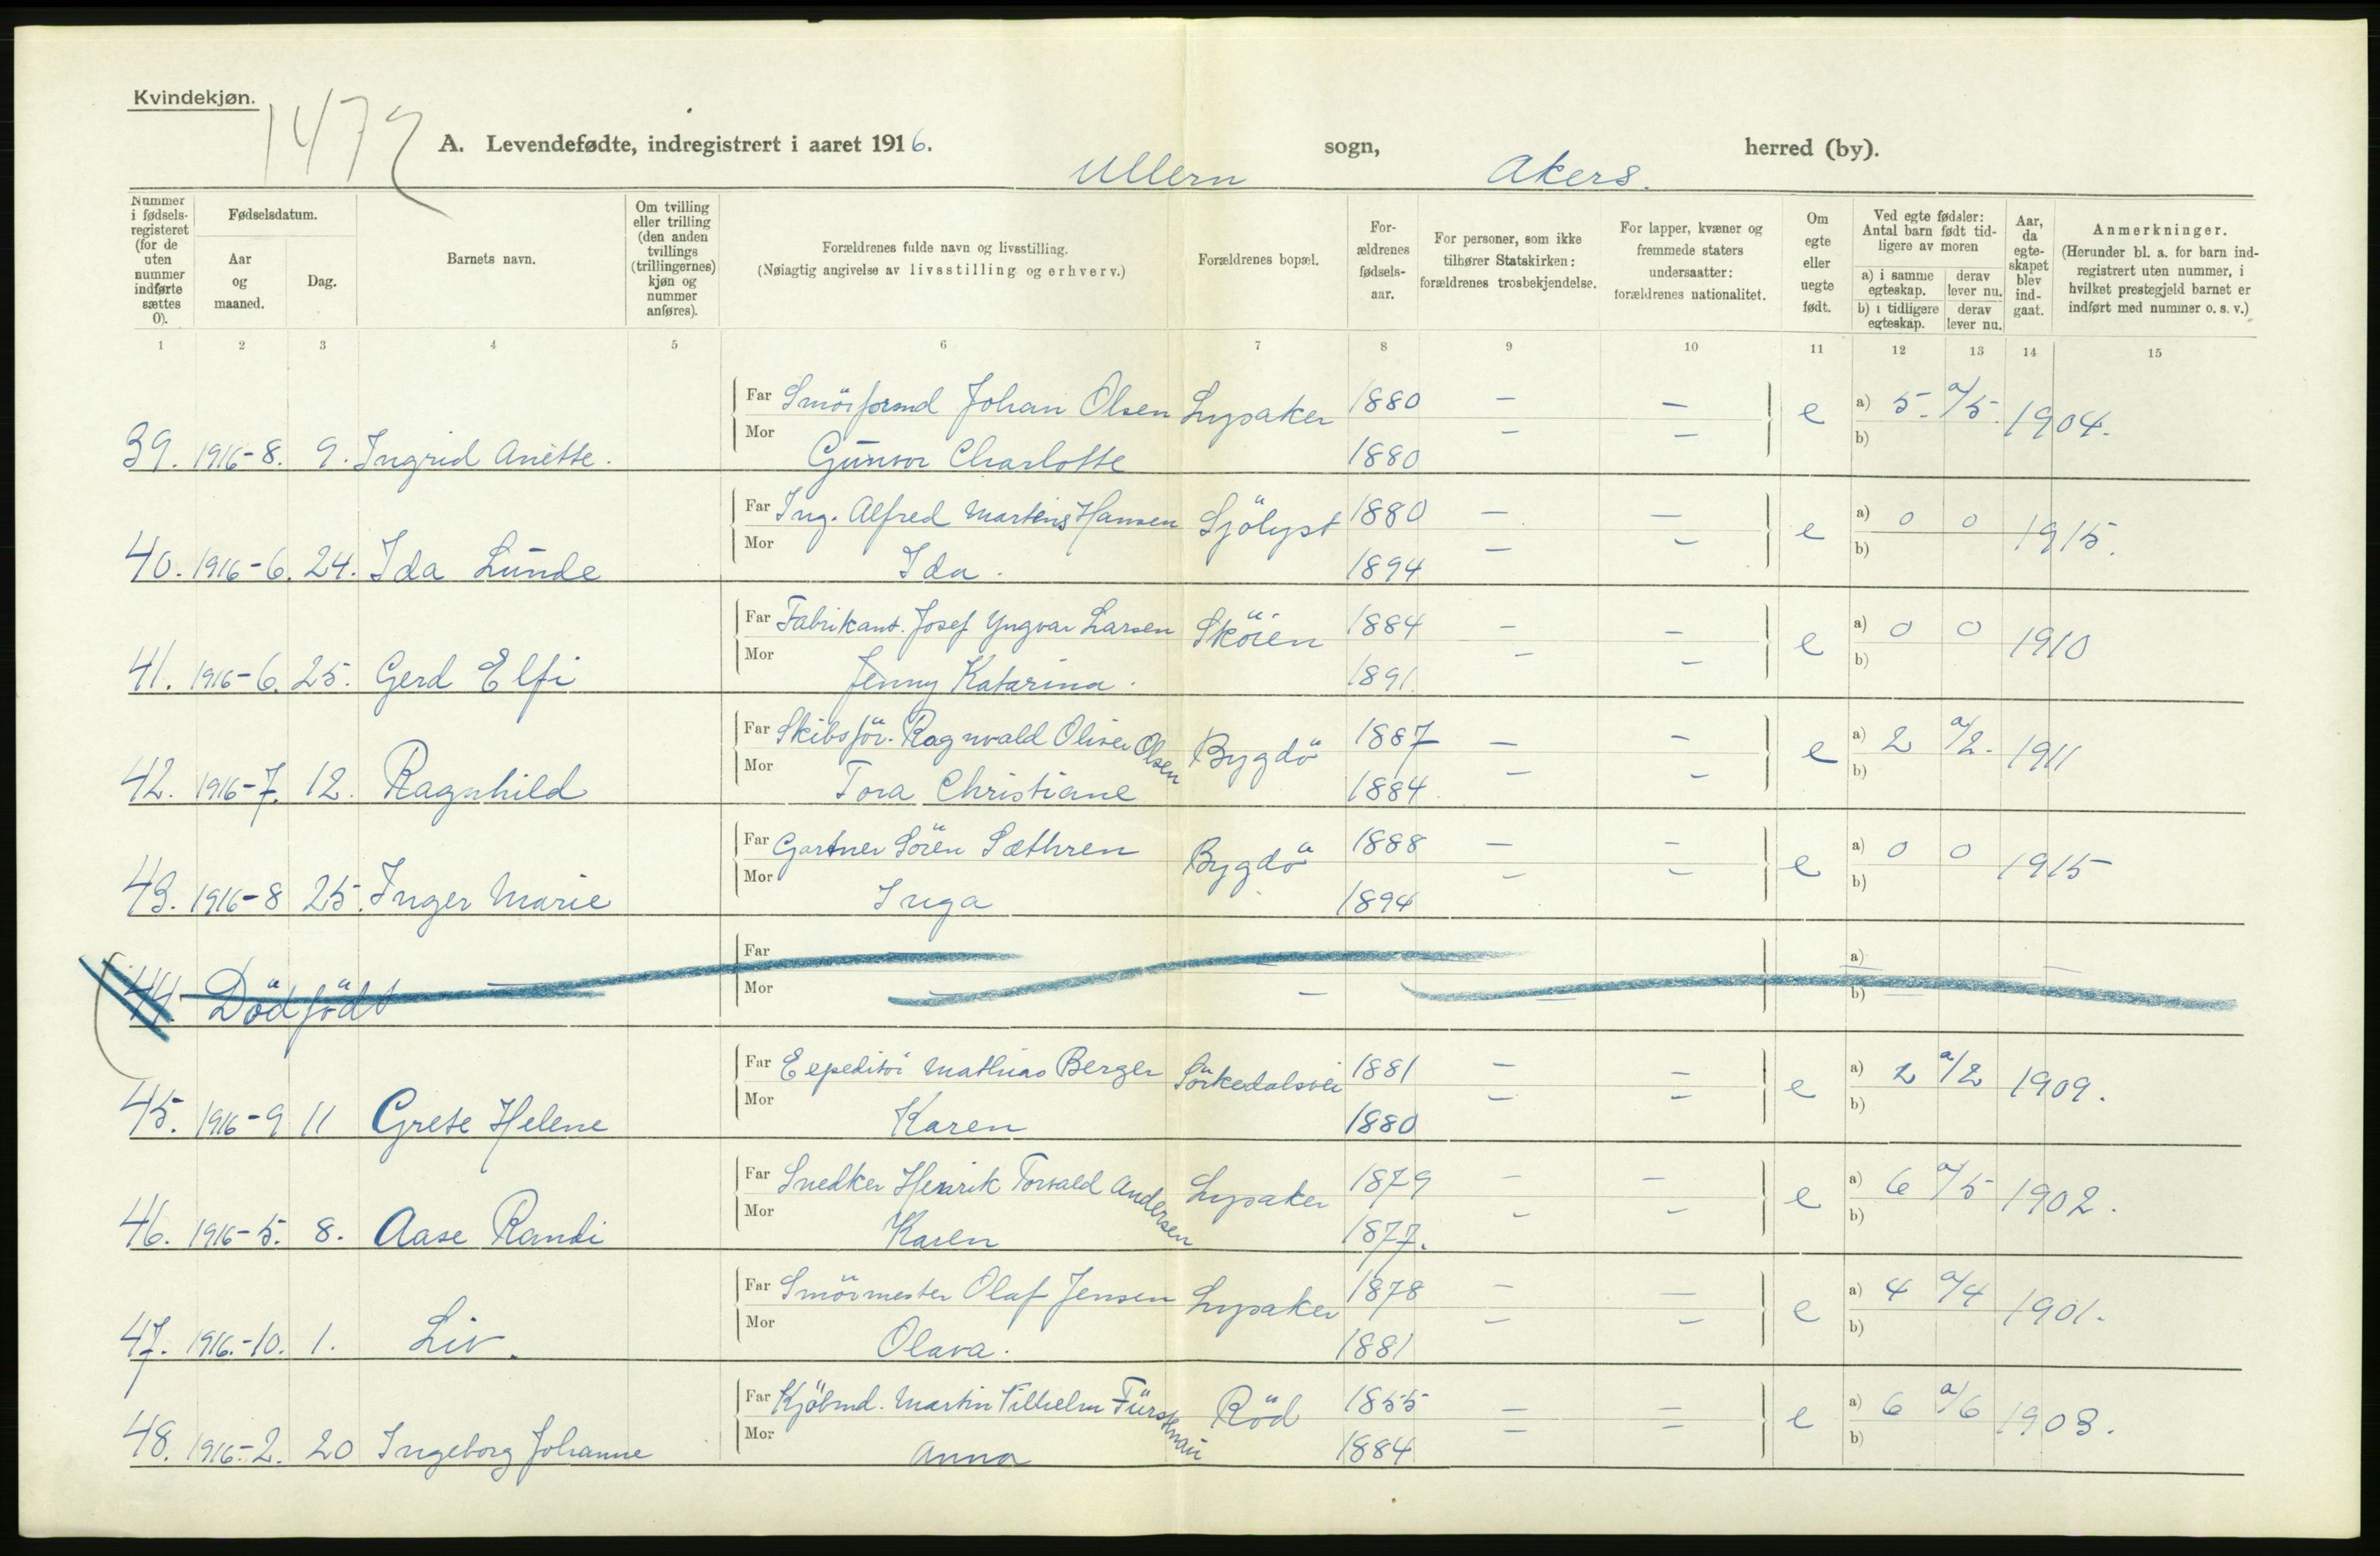 Kvindekjøn.
1472
A. Levendefødte, indregistrert i aaret 1916. Ullern sogn, Akers. herred (by).
Nummer i fødsels-registeret (for de uten nummer indførte sættes 0).
Fødselsdatum.
Aar og maaned.
Dag.
Barnets navn.
Om tvilling eller trilling (den anden tvillings (trillingernes) kjøn og nummer anføres).
Forældrenes fulde navn og livsstilling.
(Nøiagtig angivelse av livsstilling og erhverv.)
Forældrenes bopæl.
For-ældrenes fødsels-aar.
For personer, som ikke tilhører Statskirken: forældrenes trosbekjendelse.
For lapper, kvæner og fremmede staters undersaatter: forældrenes nationalitet.
Om egte eller uegte født.
Ved egte fødsler: Antal barn født tid-ligere av moren
a) i samme egteskap. derav lever nu.
b) i tidligere egteskap. derav lever nu.
Aar, da egte-skapet blev ind-gaat.
Anmerkninger.
(Herunder bl. a. for barn ind-registrert uten nummer, i hvilket prestegjeld barnet er indført med nummer o. s. v.)
1 2 3 4 5 6 7 8 9 10 11 12 13 14 15
Far Smörformd Johan Olsen Lysaker 1880 — — e a) 5. a/5. 1904.
39. 1916-8. 9. Ingrid Anette. Mor Gunvor Charlotte 1880 — — b)
Far Ing. Alfred Martens Hansen Sjölyst 1880 — — e a) 0 0 1915.
40. 1916-6. 24. Ida Lunde Mor Ida. 1894 — — b)
Far Fabrikant. Josef Yngvar Larsen Sköien 1884 — — e a) 0 0 1910
41. 1916-6. 25. Gerd Elfi Mor Jenny Katarina. 1891 — — b)
Far Skibsför. Ragnvald Oliver Olsen Bygdö 1887 — — e a) 2 a/2. 1911
42. 1916-7. 12. Ragnhild Mor Tora Christiane 1884. — — b)
Far Gartner Sören Sæthren Bygdö 1888 — — e a) 0 0 1915
43. 1916-8 25. Inger Marie Mor Inga 1894 — — b)
Far a)
44. Dödfödt — Mor — — — b) —
Far Expeditör Mathias Berger Sörkedalsvei 1881 — — e a) 2 a/2 1909.
45. 1916-9 11 Grete Helene Mor Karen 1880 — — b)
Far Snedker Henrik Torvald Andersen Lysaker 1879 — — e a) 6 a/5 1902.
46. 1916-5. 8. Aase Randi Mor Karen 1877. — — b)
Far Smörmester Olaf Jensen Lysaker 1878 — — e a) 4 a/4 1901.
47. 1916.-10. 1. Liv. Mor Olava. 1881 — — b)
Far Kjöbmd. Martin Vilhelm Röd 1855 — — e a) 6 a/6 1903.
48. 1916.-2. 20 Ingeborg Johanne Mor Anna 1884 — — b)